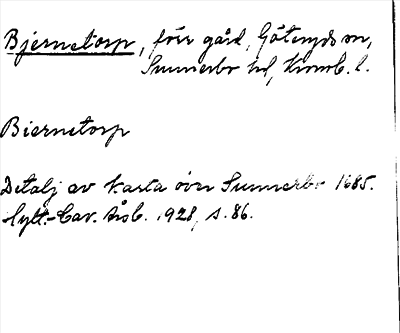 Bjernetorp, förr gård, Göteryds sn,
Sunnerbo hd, Kronob. l.
Biernetorp
Detalj av karta över Sunnerbo 1685.
Hylt.-Cav. Årsb. 1928, s. 86.